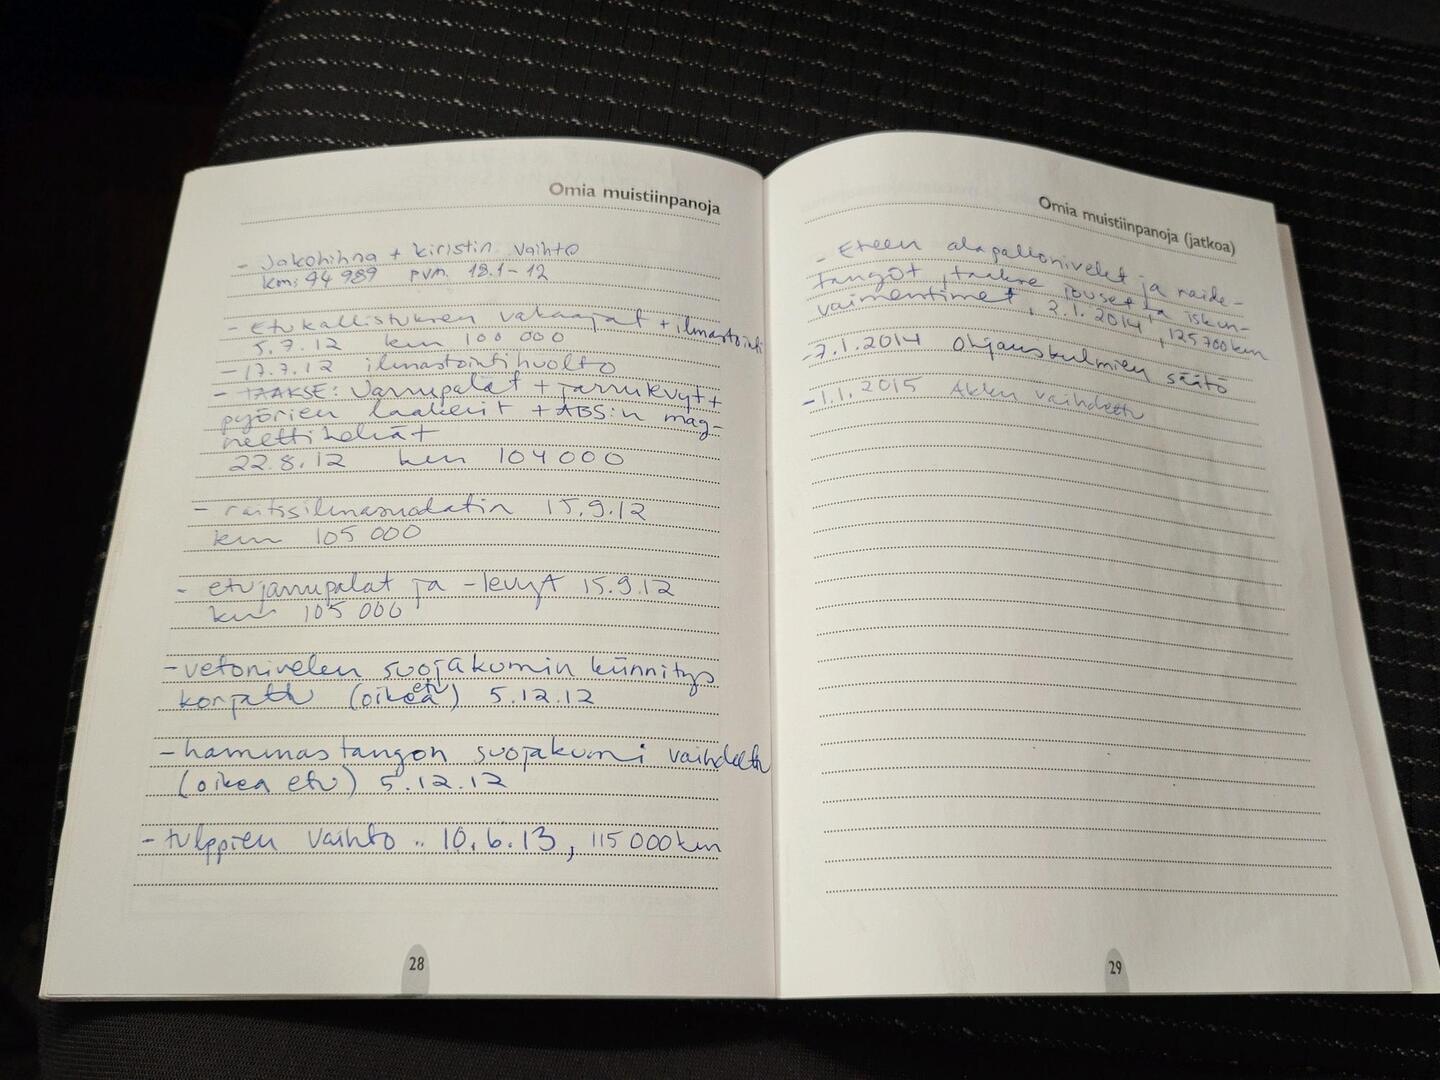 Omia muistiinpanoja
- Jakohihna + kiristin vaihto
km: 94 989 pvm. 18.1-12
- Etukallistuksen vakaajat + ilmastointi
5.7.12 km 100 000
- 17.7.12 ilmastointihuolto
- TAAKSE: Jarrupalat + jarrulevyt +
pyörien laakerit + ABS:n mag-
neettikehät
22.8.12 km 104 000
- raitisilmasuodatin 15.9.12
km 105 000
- etujarrupalat ja -levyt 15.9.12
km 105 000
- vetonivelen suojakumin kiinnitys
korjattu (oikea etu) 5.12.12
- hammastangon suojakumi vaihdettu
(oikea etu) 5.12.12
- tulppien vaihto .. 10.6.13, 115 000 km
28
Omia muistiinpanoja (jatkoa)
- Eteen alapallonivelet ja raide-
tangot, taakse jouset ja iskun-
vaimentimet, 2.1.2014, 125 700 km
- 7.1.2014 Ohjauskulmien säätö
- 1.1.2015 Akku vaihdettu
29